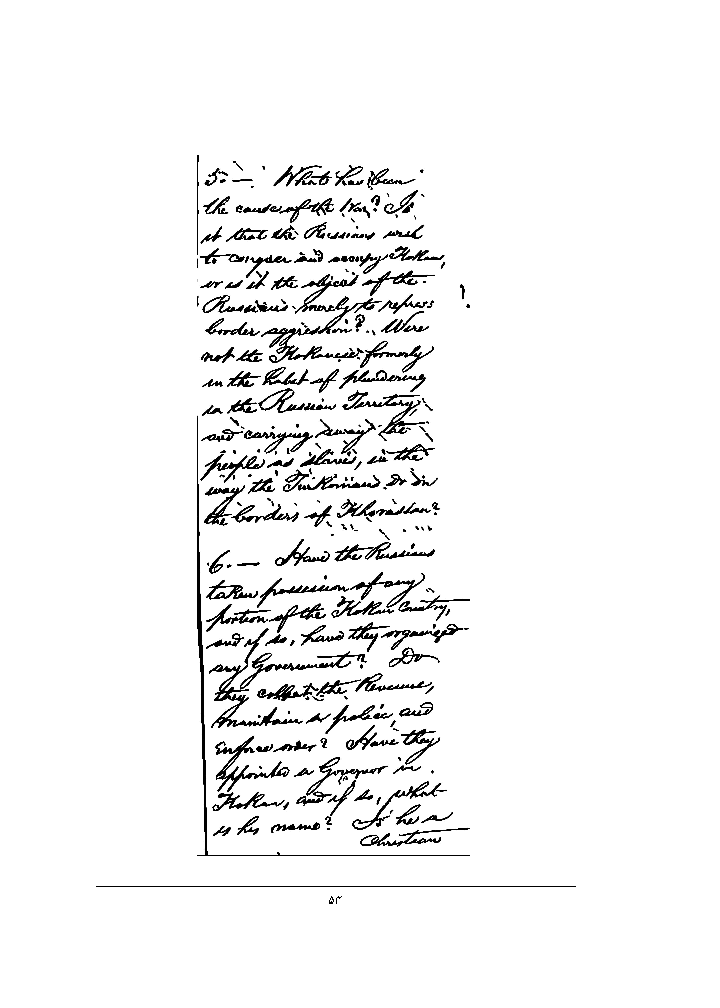 5. — What has been
the cause of the War? Is
it that the Russians wish
to conquer and occupy Kokan,
or is it the object of the
Russians merely to repress
border aggression? Were
not the Kokanese formerly
in the habit of plundering
in the Russian Territory,
and carrying away the
people as slaves, in the
way the Turkomans do on
the borders of Khorassan?
6. — Have the Russians
taken possession of any
portion of the Kokan Country,
and if so, have they organized
any Government? Do
they collect the Revenue,
maintain a police, and
enforce order? Have they
appointed a Governor in
Kokan, and if so, what
is his name? Is he a
Christian
۵۳